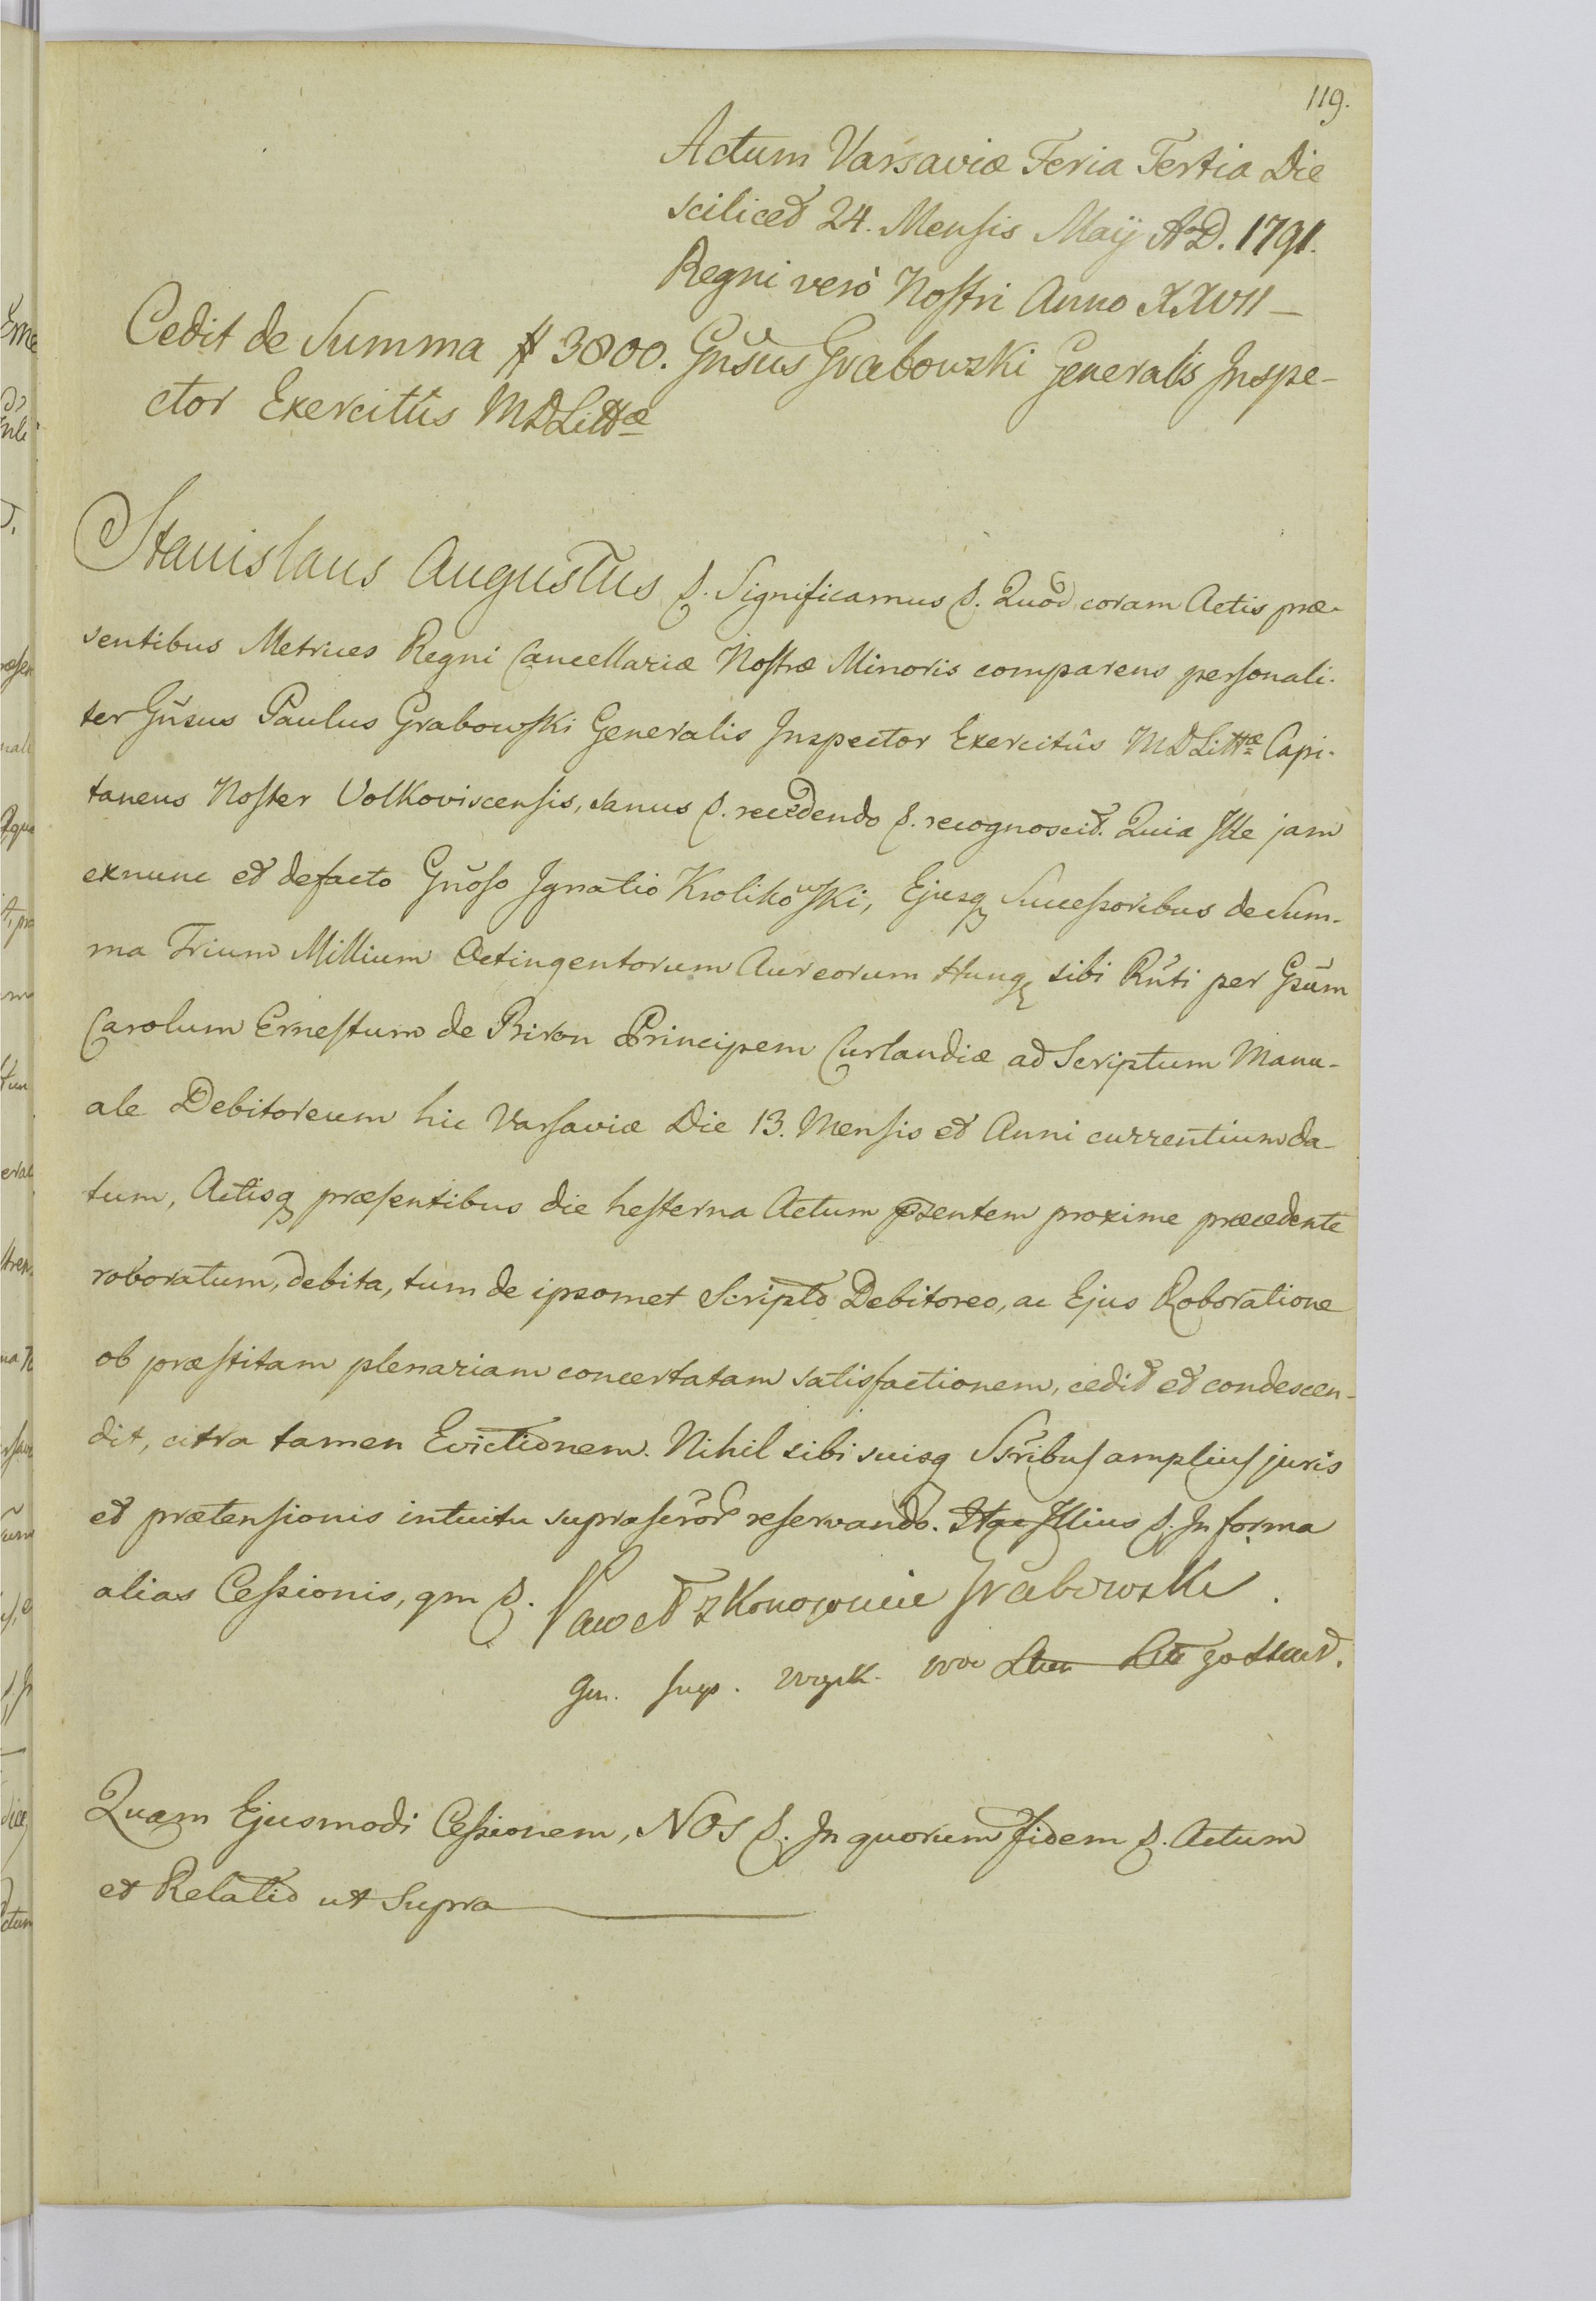 119.
Actum Varsaviæ Feria Tertia Die
scilicet 24. Mensis Maÿ A.D. 1791.
Regni verò Nostri Anno XXVII
Cedit de Summa # 3800. Gnŝus Grabowski Generalis Inspe-
ctor Exercitûs MDLittæ
Stanislaus Augustus &. Significamus &. Quod coram Actis præ-
sentibus Metrices Regni Cancellariæ Nostræ Minoris comparens personali-
ter Gñsus Paulus Grabowski Generalis Inspector Exercitûs MDLittæ Capi-
taneus Noster Volkoviscensis, sanus &. recedendo &. recognoscit. Quia Ille jam
exnunc et defacto Gnoso Ignatio Krolikowski, Ejusq Successoribus de Sum-
ma Trium Millium Octingentorum Aureorum Hung sibi Rnti per Gsum
Carolum Ernestum de Biron Principem Curlandiæ ad Scriptum Manu-
ale Debitoreum hic Varsaviæ Die 13. Mensis et Anni currentium da-
tum, Actisq præsentibus die hesterna Actum pzentem proxime præcedente
roboratum, debita, tum de ipsomet Scripto Debitoreo, ac Ejus Roboratione
ob præstitam plenariam concertatam satisfactionem, cedit et condescen-
dit, citra tamen Evictionem. Nihil sibi suisq Ssribus amplius juris
et prætensionis intuitu suprascror reservando. Itae Illius &. In forma
alias Cessionis, qm &. Paweł z Konojewic Grabowski.
Gen. Insp. woysk. ww
Quam Ejusmodi Cessionem, NOS &. In quorum fidem &. Actum
et Relatio ut Supra